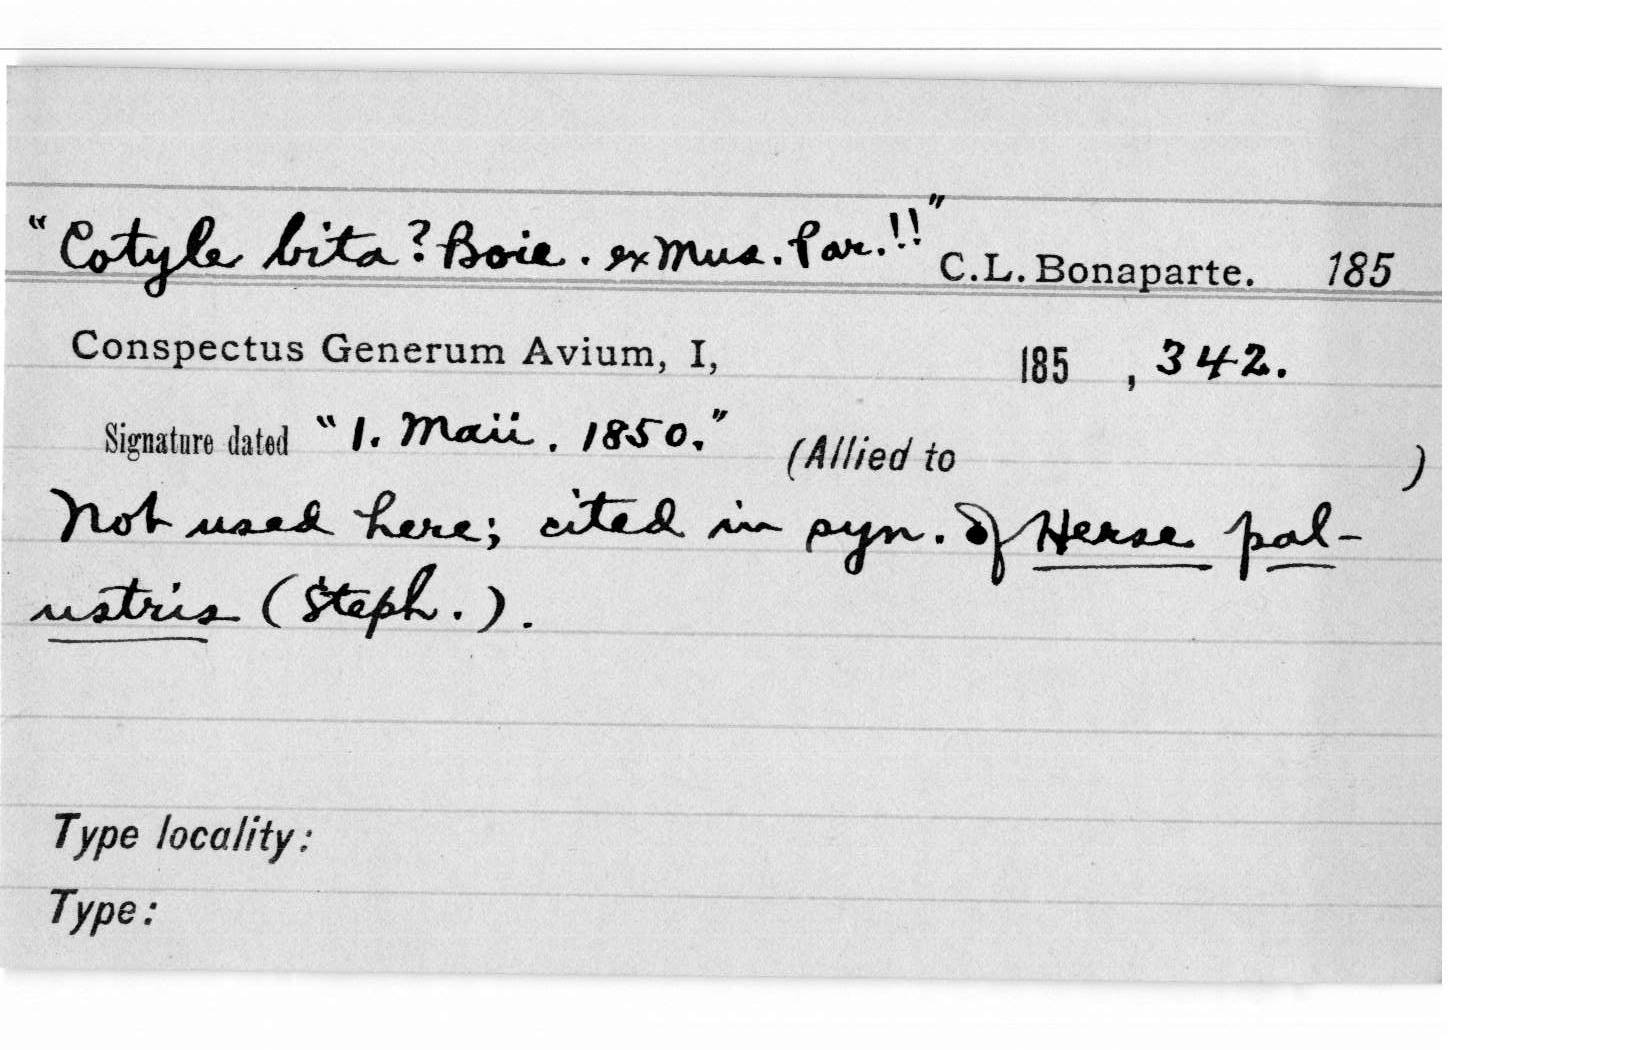 "Cotyle bita? Boie. ex Mus. Par.!!" C.L. Bonaparte. 185
Conspectus Generum Avium, I, 185 , 342.
Signature dated "1. Maii. 1850." (Allied to )
Not used here; cited in syn. of Herse pal-
ustris (Steph.).
Type locality:
Type: